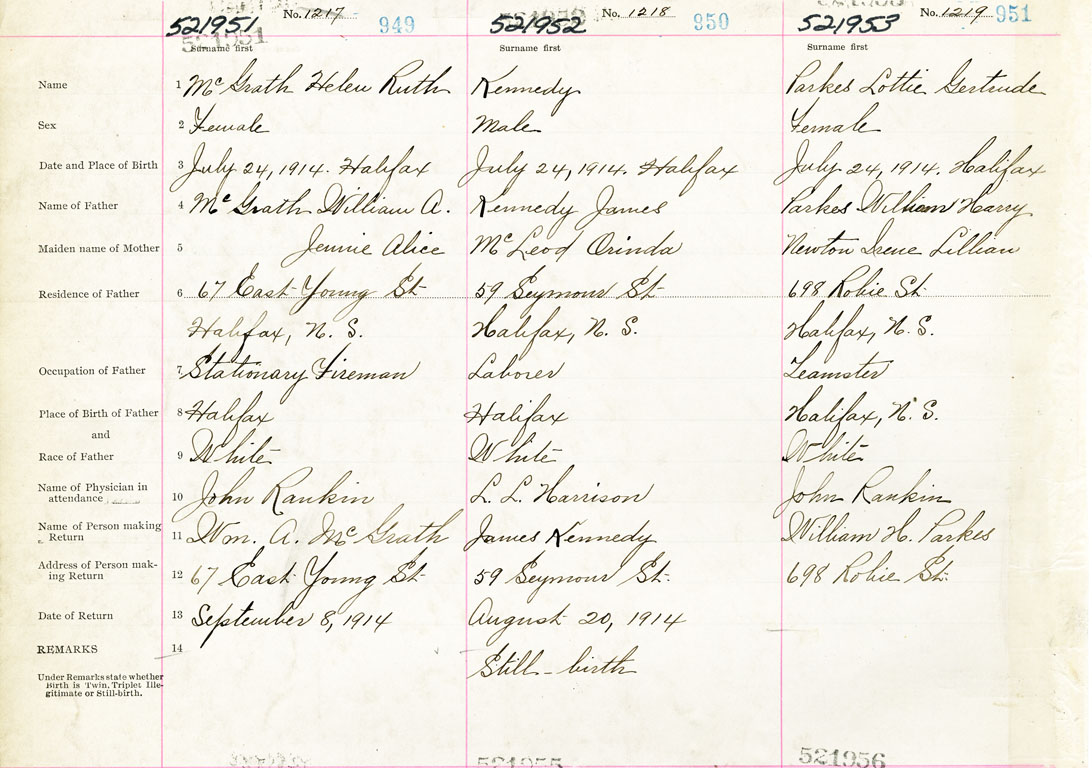 521951 No. 1217 949 521952 No. 1218 950 521953 No. 1219 951
Surname first Surname first Surname first
Name 1 McGrath Helen Ruth Kennedy Parkes Lottie Gertrude
Sex 2 Female Male Female
Date and Place of Birth 3 July 24, 1914. Halifax July 24, 1914. Halifax July 24, 1914. Halifax
Name of Father 4 McGrath William A. Kennedy James Parkes William Harry
Maiden name of Mother 5 Jennie Alice McLeod Orinda Newton Irene Lillian
Residence of Father 6 67 East Young St 59 Seymour St 698 Robie St.
Halifax, N. S. Halifax, N. S. Halifax, N. S.
Occupation of Father 7 Stationary Fireman Laborer Teamster
Place of Birth of Father 8 Halifax Halifax Halifax, N. S.
and
Race of Father 9 White White White
Name of Physician in
attendance 10 John Rankin L. L. Harrison John Rankin
Name of Person making
Return 11 Wm. A. McGrath James Kennedy William H. Parkes
Address of Person mak-
ing Return 12 67 East Young St 59 Seymour St. 698 Robie St.
Date of Return 13 September 8, 1914 August 20, 1914
REMARKS 14
Still-birth
Under Remarks state whether
Birth is Twin, Triplet Ille-
gitimate or Still-birth.
521955 521956